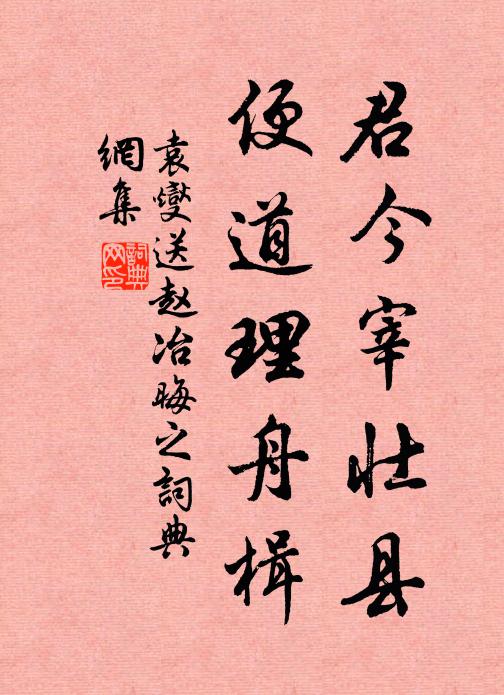 君今宰壮县
便道理舟楫
袁燮送赵冶晦之詞典
網集
詞典网印